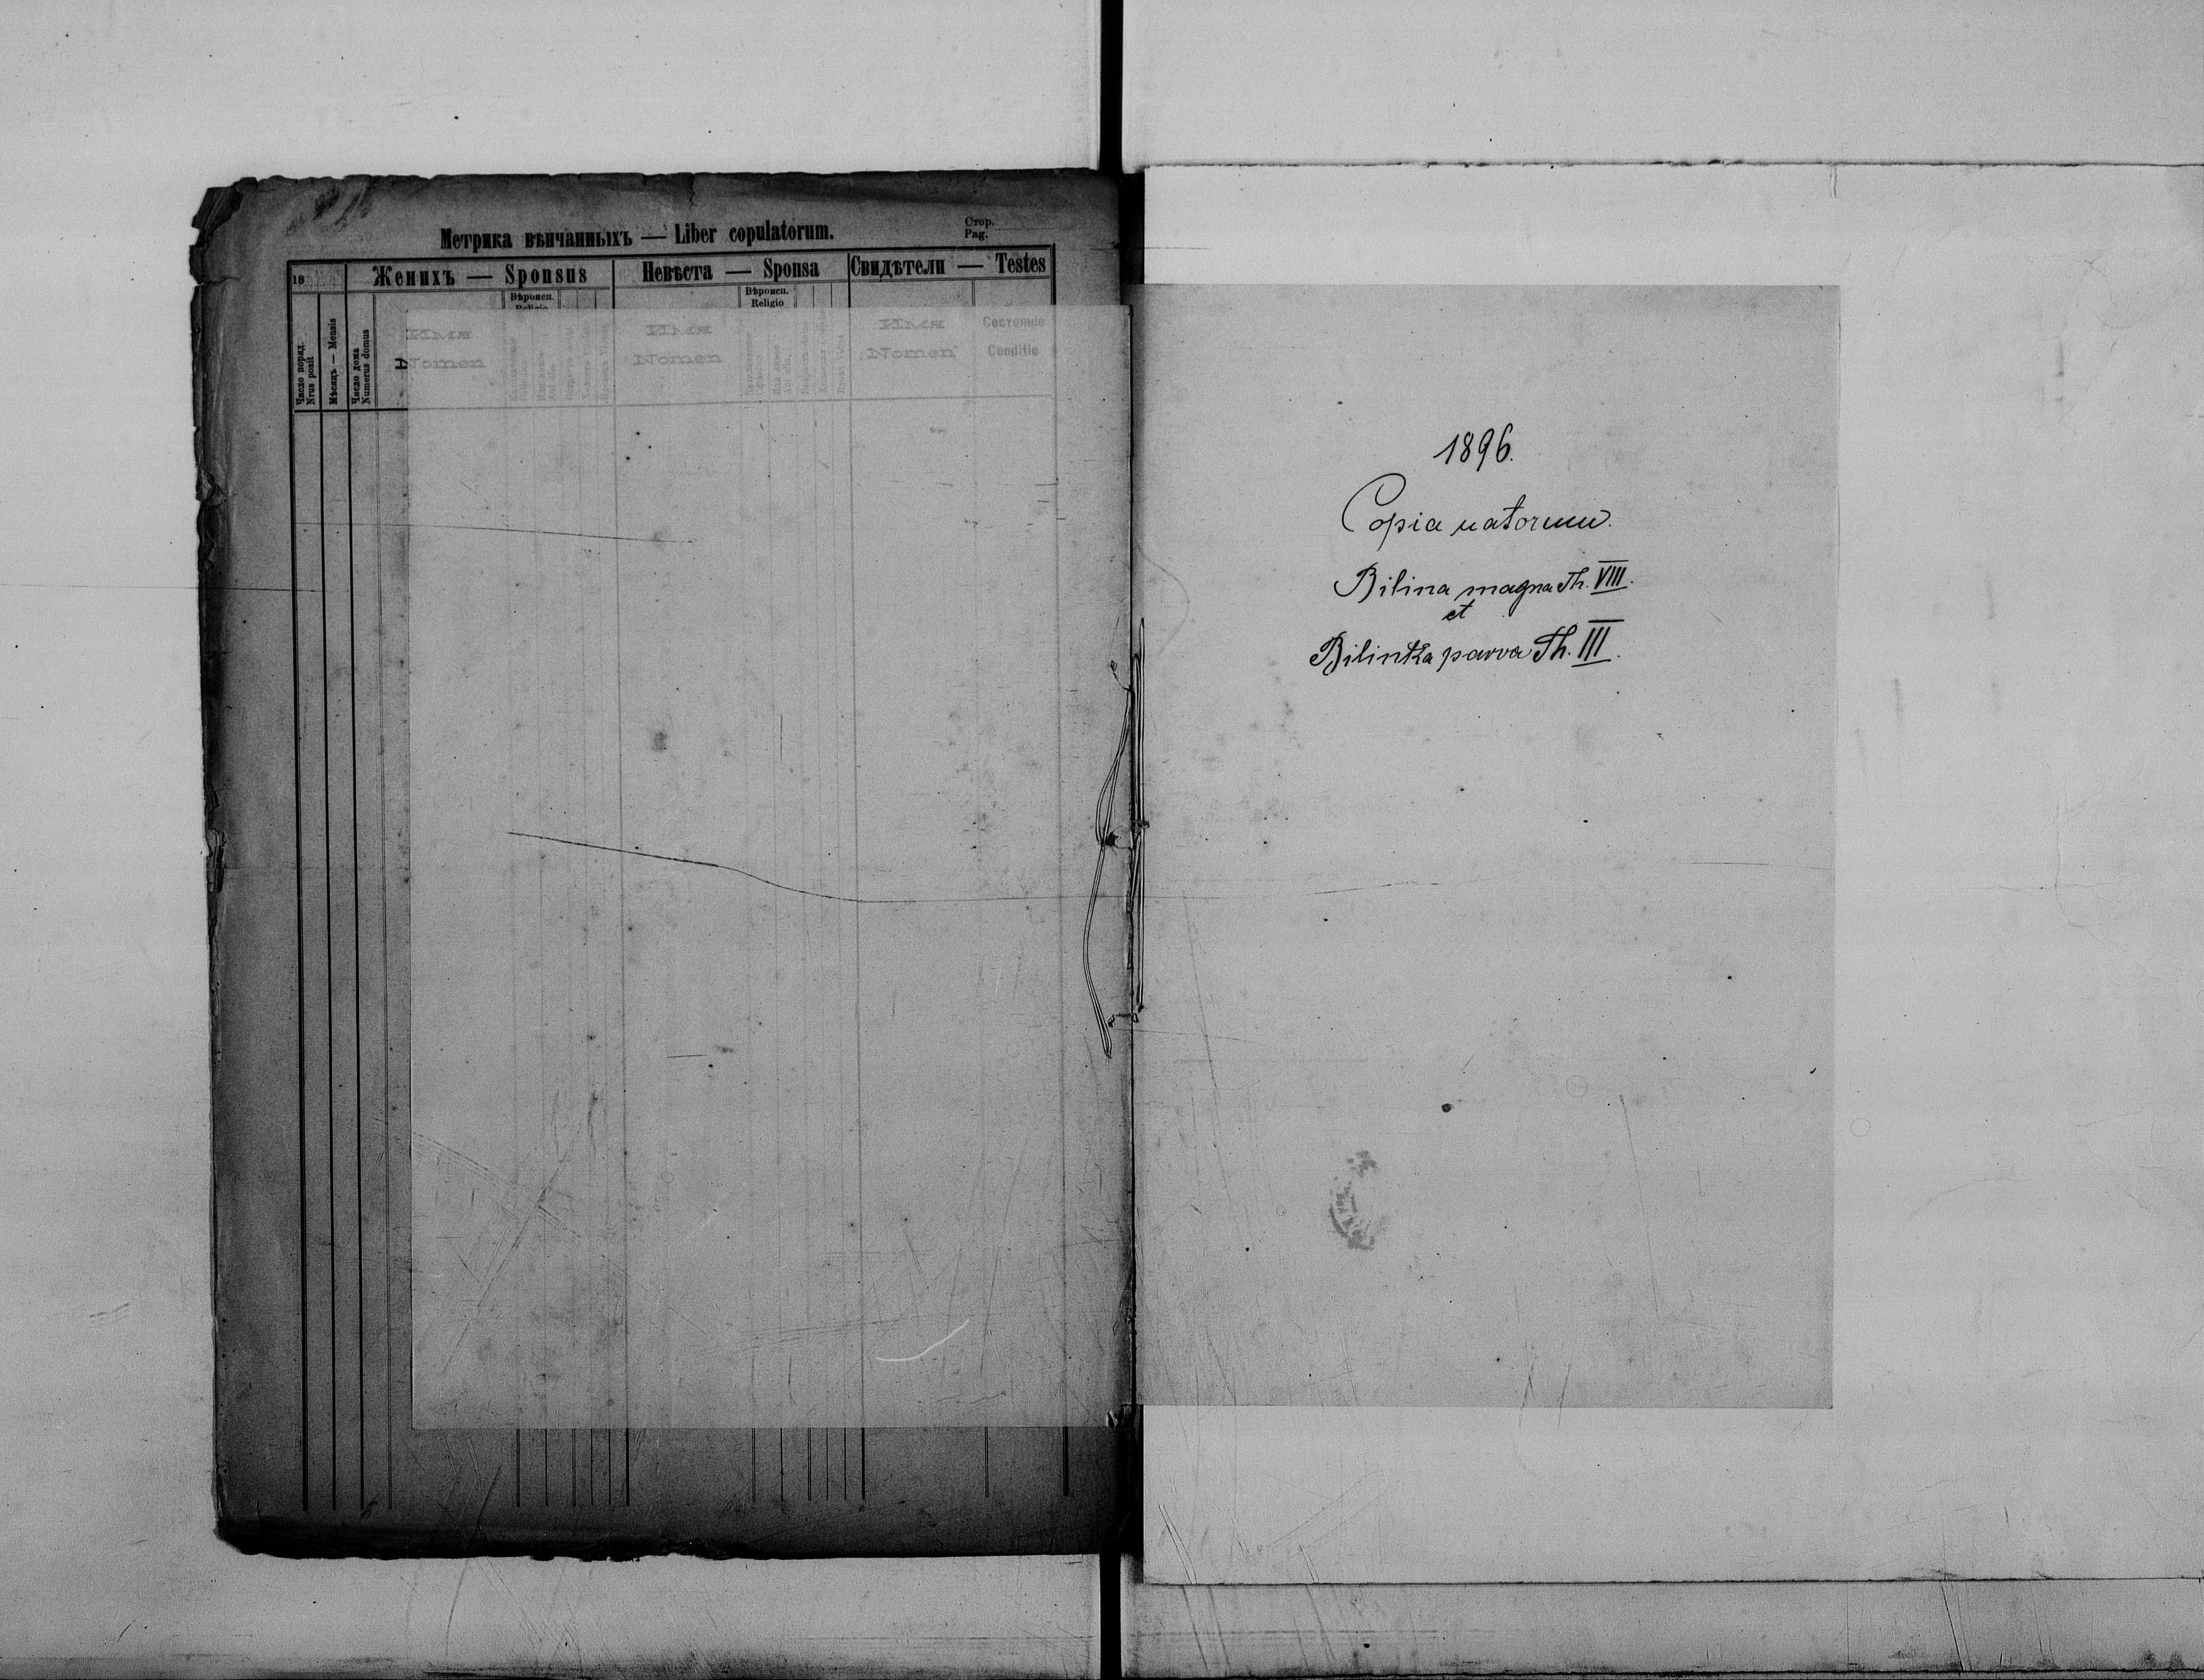 Метрика вѣнчанныхъ — Liber copulatorum.
Стор.
Pag.
18
Женихъ — Sponsus
Невѣста — Sponsa
Свидѣтели — Testes
Вѣроисп.
Religio
Вѣроисп.
Religio
Число поряд.
Nrus posit
Мѣсяцъ — Mensis
Число дома
Numerus domus
Имя
Nomen
Имя
Nomen
Имя
Nomen
Состояніе
Conditio
1896.
Copia natorum.
Bilina magna Th. VIII.
et
Bilinka parva Th. III.